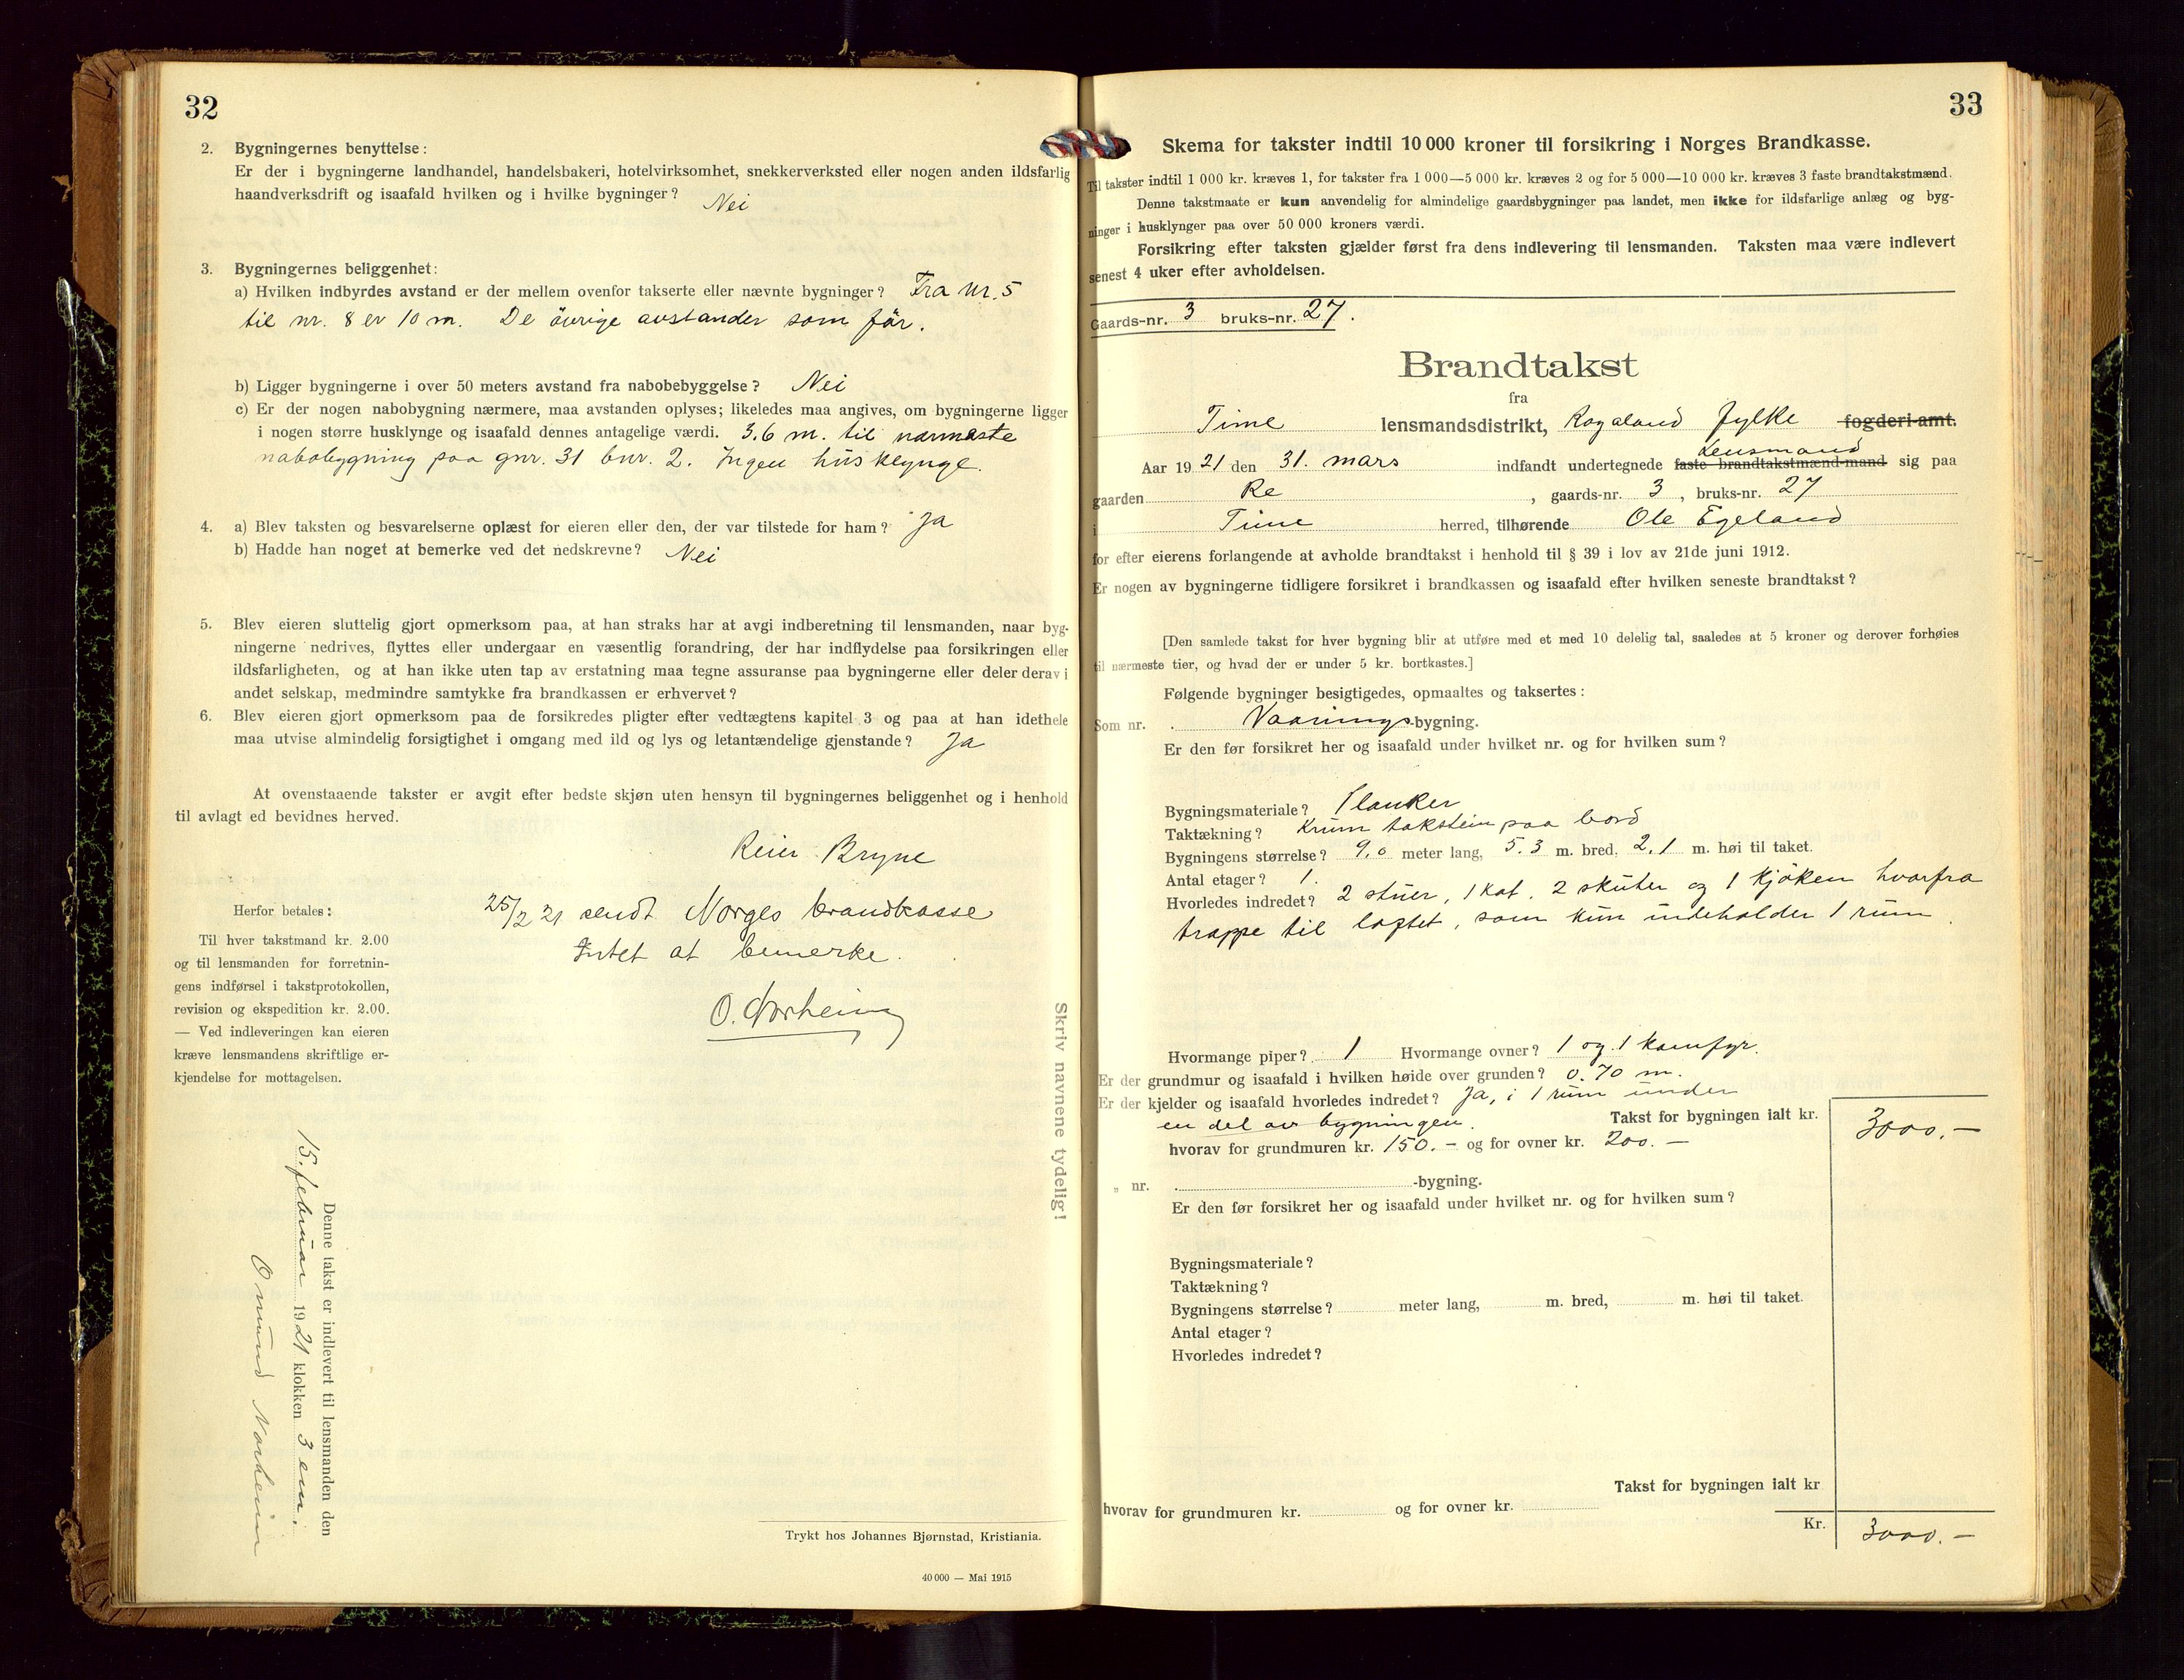 32
2. Bygningernes benyttelse:
Er der i bygningerne landhandel, handelsbakeri, hotelvirksomhet, snekkerverksted eller nogen anden ildsfarlig
haandverksdrift og isaafald hvilken og i hvilke bygninger? Nei
3. Bygningernes beliggenhet:
a) Hvilken indbyrdes avstand er der mellem ovenfor takserte eller nævnte bygninger? Fra nr. 5
til nr. 8 er 10 m. De övrige avstander som för.
b) Ligger bygningerne i over 50 meters avstand fra nabobebyggelse? Nei
c) Er der nogen nabobygning nærmere, maa avstanden oplyses; likeledes maa angives, om bygningerne ligger
i nogen større husklynge og isaafald dennes antagelige værdi. 3.6 m. til nærmeste
nabobygning paa gnr. 31 bnr. 2. Ingen husklynge.
4. a) Blev taksten og besvarelserne oplæst for eieren eller den, der var tilstede for ham? Ja
b) Hadde han noget at bemerke ved det nedskrevne? Nei
5. Blev eieren sluttelig gjort opmerksom paa, at han straks har at avgi indberetning til lensmanden, naar byg-
ningerne nedrives, flyttes eller undergaar en væsentlig forandring, der har indflydelse paa forsikringen eller
ildsfarligheten, og at han ikke uten tap av erstatning maa tegne assuranse paa bygningerne eller deler derav i
andet selskap, medmindre samtykke fra brandkassen er erhvervet?
6. Blev eieren gjort opmerksom paa de forsikredes pligter efter vedtægtens kapitel 3 og paa at han idethele
maa utvise almindelig forsigtighet i omgang med ild og lys og letantændelige gjenstande? Ja
At ovenstaaende takster er avgit efter bedste skjøn uten hensyn til bygningernes beliggenhet og i henhold
til avlagt ed bevidnes herved.
Reier Bryne
25/2 21 sendt Norges brandkasse
Intet at bemerke.
O. Norheim
Herfor betales:
Til hver takstmand kr. 2.00
og til lensmanden for forretnin-
gens indførsel i takstprotokollen,
revision og ekspedition kr. 2.00.
— Ved indleveringen kan eieren
kræve lensmandens skriftlige er-
kjendelse for mottagelsen.
Skriv navnene tydelig!
Denne takst er indlevert til lensmanden den
15. februar 1921 klokken 3 em.
Omund Norheim
Trykt hos Johannes Bjørnstad, Kristiania.
40 000 — Mai 1915
33
Skema for takster indtil 10 000 kroner til forsikring i Norges Brandkasse.
Til takster indtil 1 000 kr. kræves 1, for takster fra 1 000—5 000 kr. kræves 2 og for 5 000—10 000 kr. kræves 3 faste brandtakstmænd.
Denne takstmaate er kun anvendelig for almindelige gaardsbygninger paa landet, men ikke for ildsfarlige anlæg og byg-
ninger i husklynger paa over 50 000 kroners værdi.
Forsikring efter taksten gjælder først fra dens indlevering til lensmanden. Taksten maa være indlevert
senest 4 uker efter avholdelsen.
Gaards-nr. 3 bruks-nr. 27.
Brandtakst
fra
Time lensmandsdistrikt, Rogaland fylke fogderi-amt.
Lensmand
Aar 1921 den 31. mars indfandt undertegnede faste brandtakstmænd-mand sig paa
gaarden Re, gaards-nr. 3, bruks-nr. 27
i Time herred, tilhørende Ole Egeland
for efter eierens forlangende at avholde brandtakst i henhold til § 39 i lov av 21de juni 1912.
Er nogen av bygningerne tidligere forsikret i brandkassen og isaafald efter hvilken seneste brandtakst?
[Den samlede takst for hver bygning blir at utføre med et med 10 delelig tal, saaledes at 5 kroner og derover forhøies
til nærmeste tier, og hvad der er under 5 kr. bortkastes.]
Følgende bygninger besigtigedes, opmaaltes og taksertes:
Som nr. . Vaanings-bygning.
Er den før forsikret her og isaafald under hvilket nr. og for hvilken sum?
Bygningsmateriale? Planker
Taktækning? Krum takstein paa bord
Bygningens størrelse? 9,0 meter lang, 5.3 m. bred, 2.1 m. høi til taket.
Antal etager? 1.
Hvorledes indredet? 2 stuer, 1 kot. 2 skuter og 1 kjöken hvorfra
trappe til loftet, som kun indeholder 1 rum.
Hvormange piper? 1 Hvormange ovner? 1 og 1 komfyr.
Er der grundmur og isaafald i hvilken høide over grunden? 0.70 m.
Er der kjelder og isaafald hvorledes indredet? Ja, i 1 rum under
en del av bygningen. Takst for bygningen ialt kr. 3000.—
hvorav for grundmuren kr. 150.— og for ovner kr. 200.—
„ nr. . -bygning.
Er den før forsikret her og isaafald under hvilket nr. og for hvilken sum?
Bygningsmateriale?
Taktækning?
Bygningens størrelse? meter lang, m. bred, m. høi til taket.
Antal etager?
Hvorledes indredet?
Takst for bygningen ialt kr
hvorav for grundmuren kr. og for ovner kr.
Kr. 3000.—